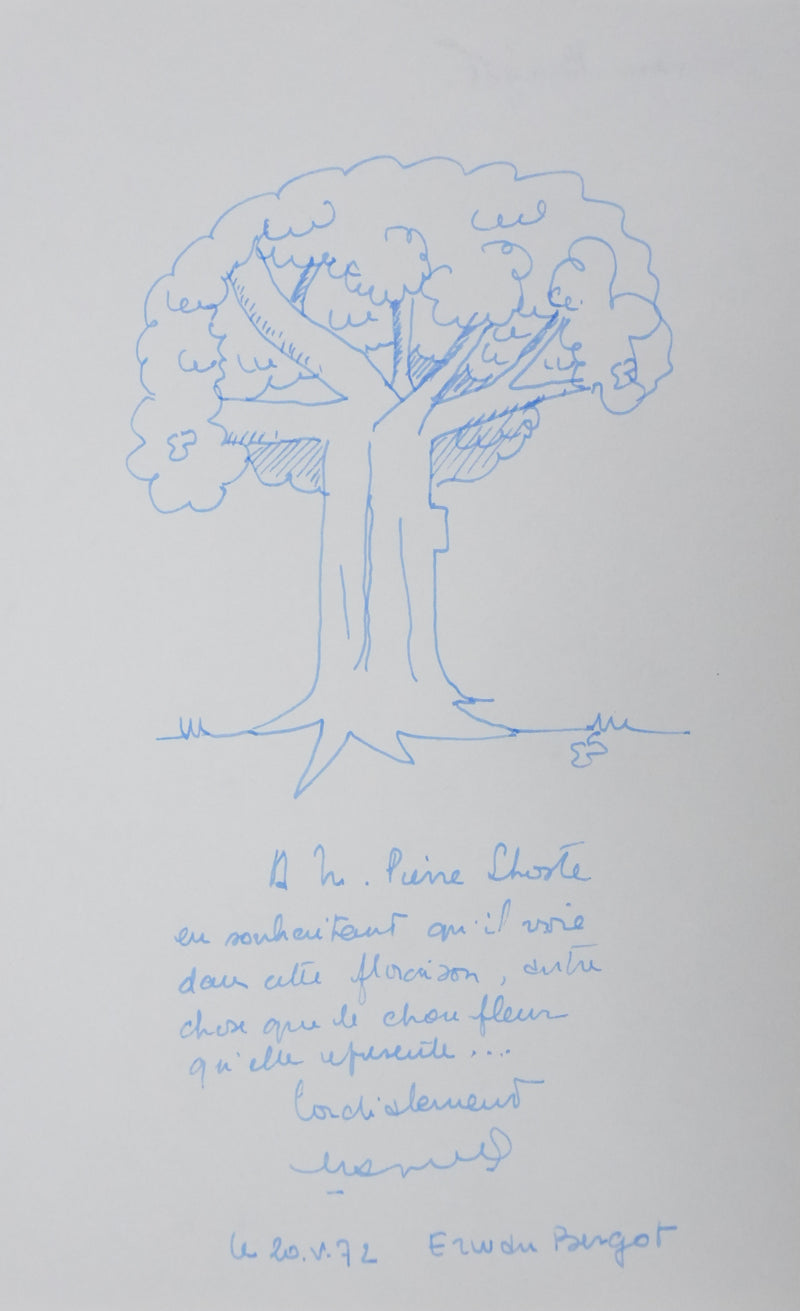 A M. Pierre Lhoste
en souhaitant qu'il voie
dans cette floraison, autre
chose que le chou fleur
qu'elle représente...
Cordialement
le 20.V.72 Erwan Bergot